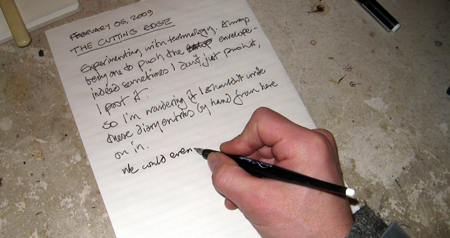 FEBRUARY 05, 2009
THE CUTTING EDGE
Experimenting with technology. Always
being one to push the envelope -
indeed sometimes I don't just push it,
I post it
So I'm wondering if I shouldn't write
these diary entries by hand from here
on in.
We could even